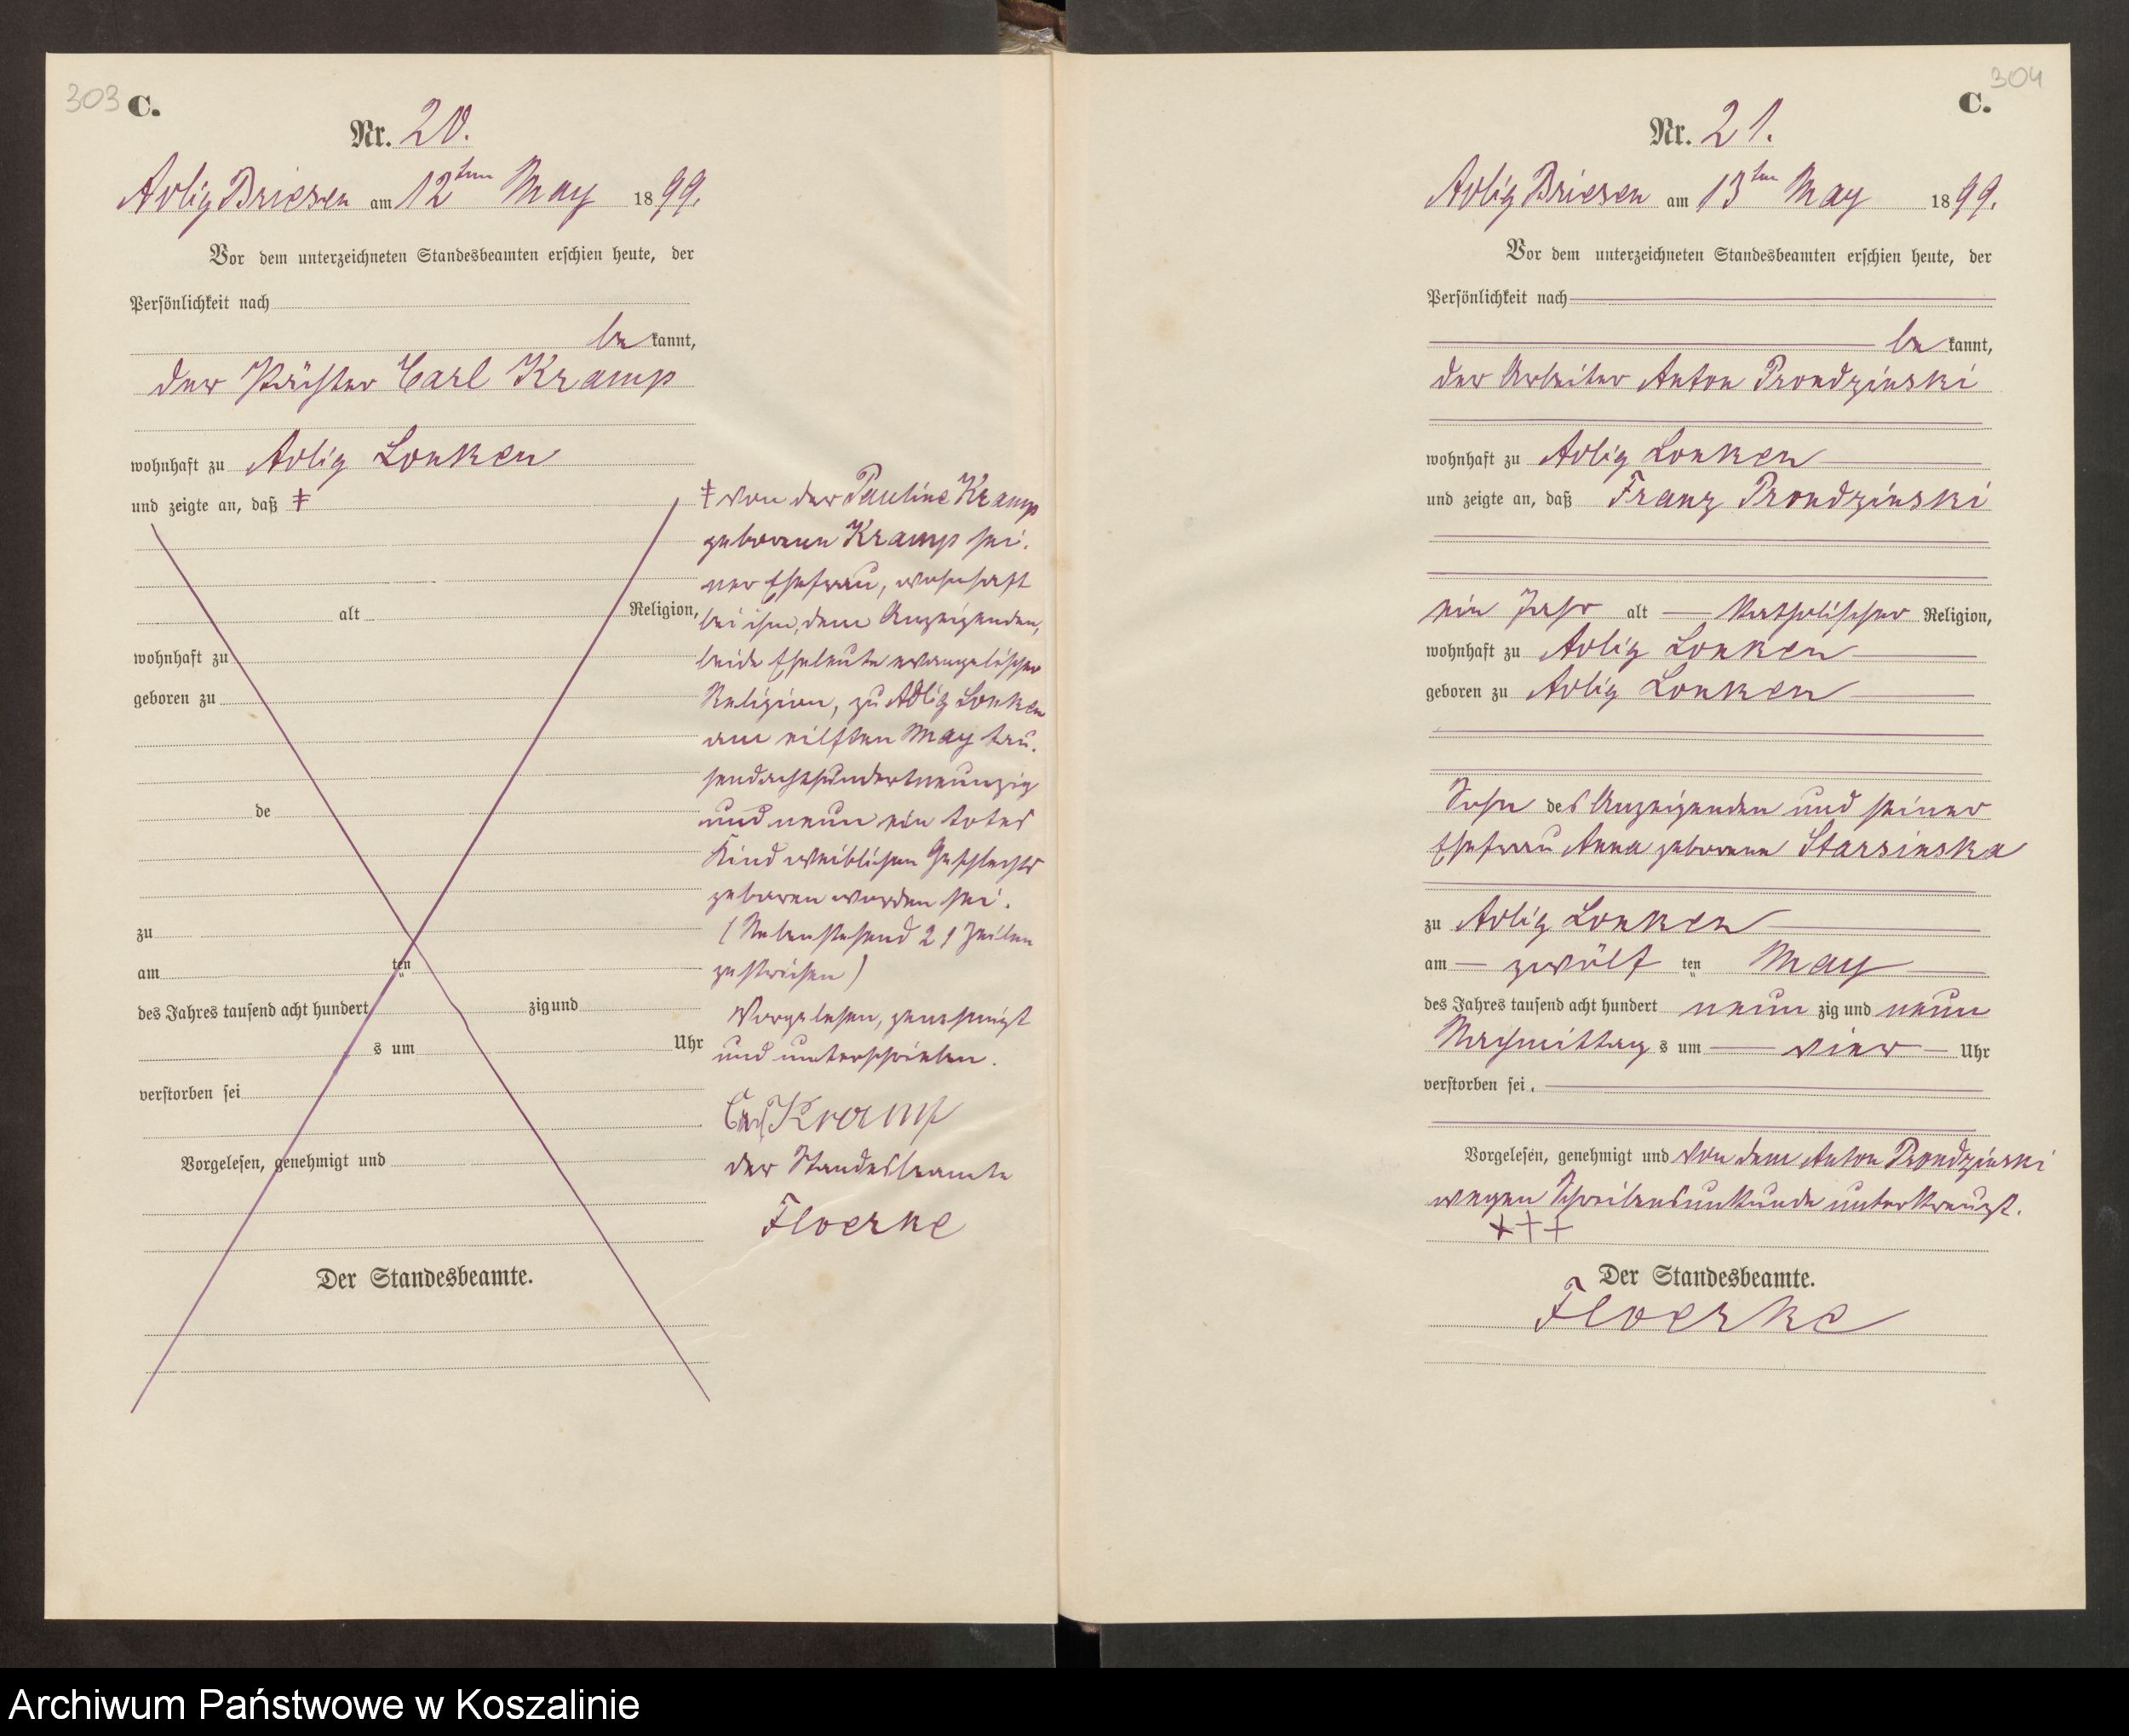 303 C.
Nr. 20.
Adlig Briesen am 12ten May 1899.
Vor dem unterzeichneten Standesbeamten erschien heute, der
Persönlichkeit nach
be kannt,
der Pächter Carl Kramp
wohnhaft zu Adlig Lonken
und zeigte an, daß ‡
alt Religion,
wohnhaft zu
geboren zu
de
zu
am ten
des Jahres tausend acht hundert zig und
s um Uhr
verstorben sei
Vorgelesen, genehmigt und
Der Standesbeamte.
‡ von der Pauline Kramp
geborenen Kramp sei-
ner Ehefrau, wohnhaft
bei ihm, dem Anzeigenden,
beide Eheleute evangelischer
Religion, zu Adlig Lonken
am eilften May tau-
sendachthundertneunzig
und neun ein totes
Kind weiblichen Geschlechts
geboren worden sei.
(Nebenstehend 21 Zeilen
gestrichen)
Vorgelesen, genehmigt
und unterschrieben.
Carl Kramp
der Standesbeamte
Floerke
304
C.
Nr. 21.
Adlig Briesen am 13ten May 1899.
Vor dem unterzeichneten Standesbeamten erschien heute, der
Persönlichkeit nach
be kannt,
der Arbeiter Anton Prondzinski
wohnhaft zu Adlig Lonken
und zeigte an, daß Franz Prondzinski
ein Jahr alt — katholischer Religion,
wohnhaft zu Adlig Lonken
geboren zu Adlig Lonken
Sohn des Anzeigenden und seiner
Ehefrau Anna geborenen Starsinska
zu Adlig Lonken
am — zwölf ten May
des Jahres tausend acht hundert neun zig und neun
Nachmittag s um — vier — Uhr
verstorben sei.
Vorgelesen, genehmigt und von dem Anton Prondzinski
wegen Schreibensunkunde unterkreuzt.
+++
Der Standesbeamte.
Floerke
Archiwum Państwowe w Koszalinie